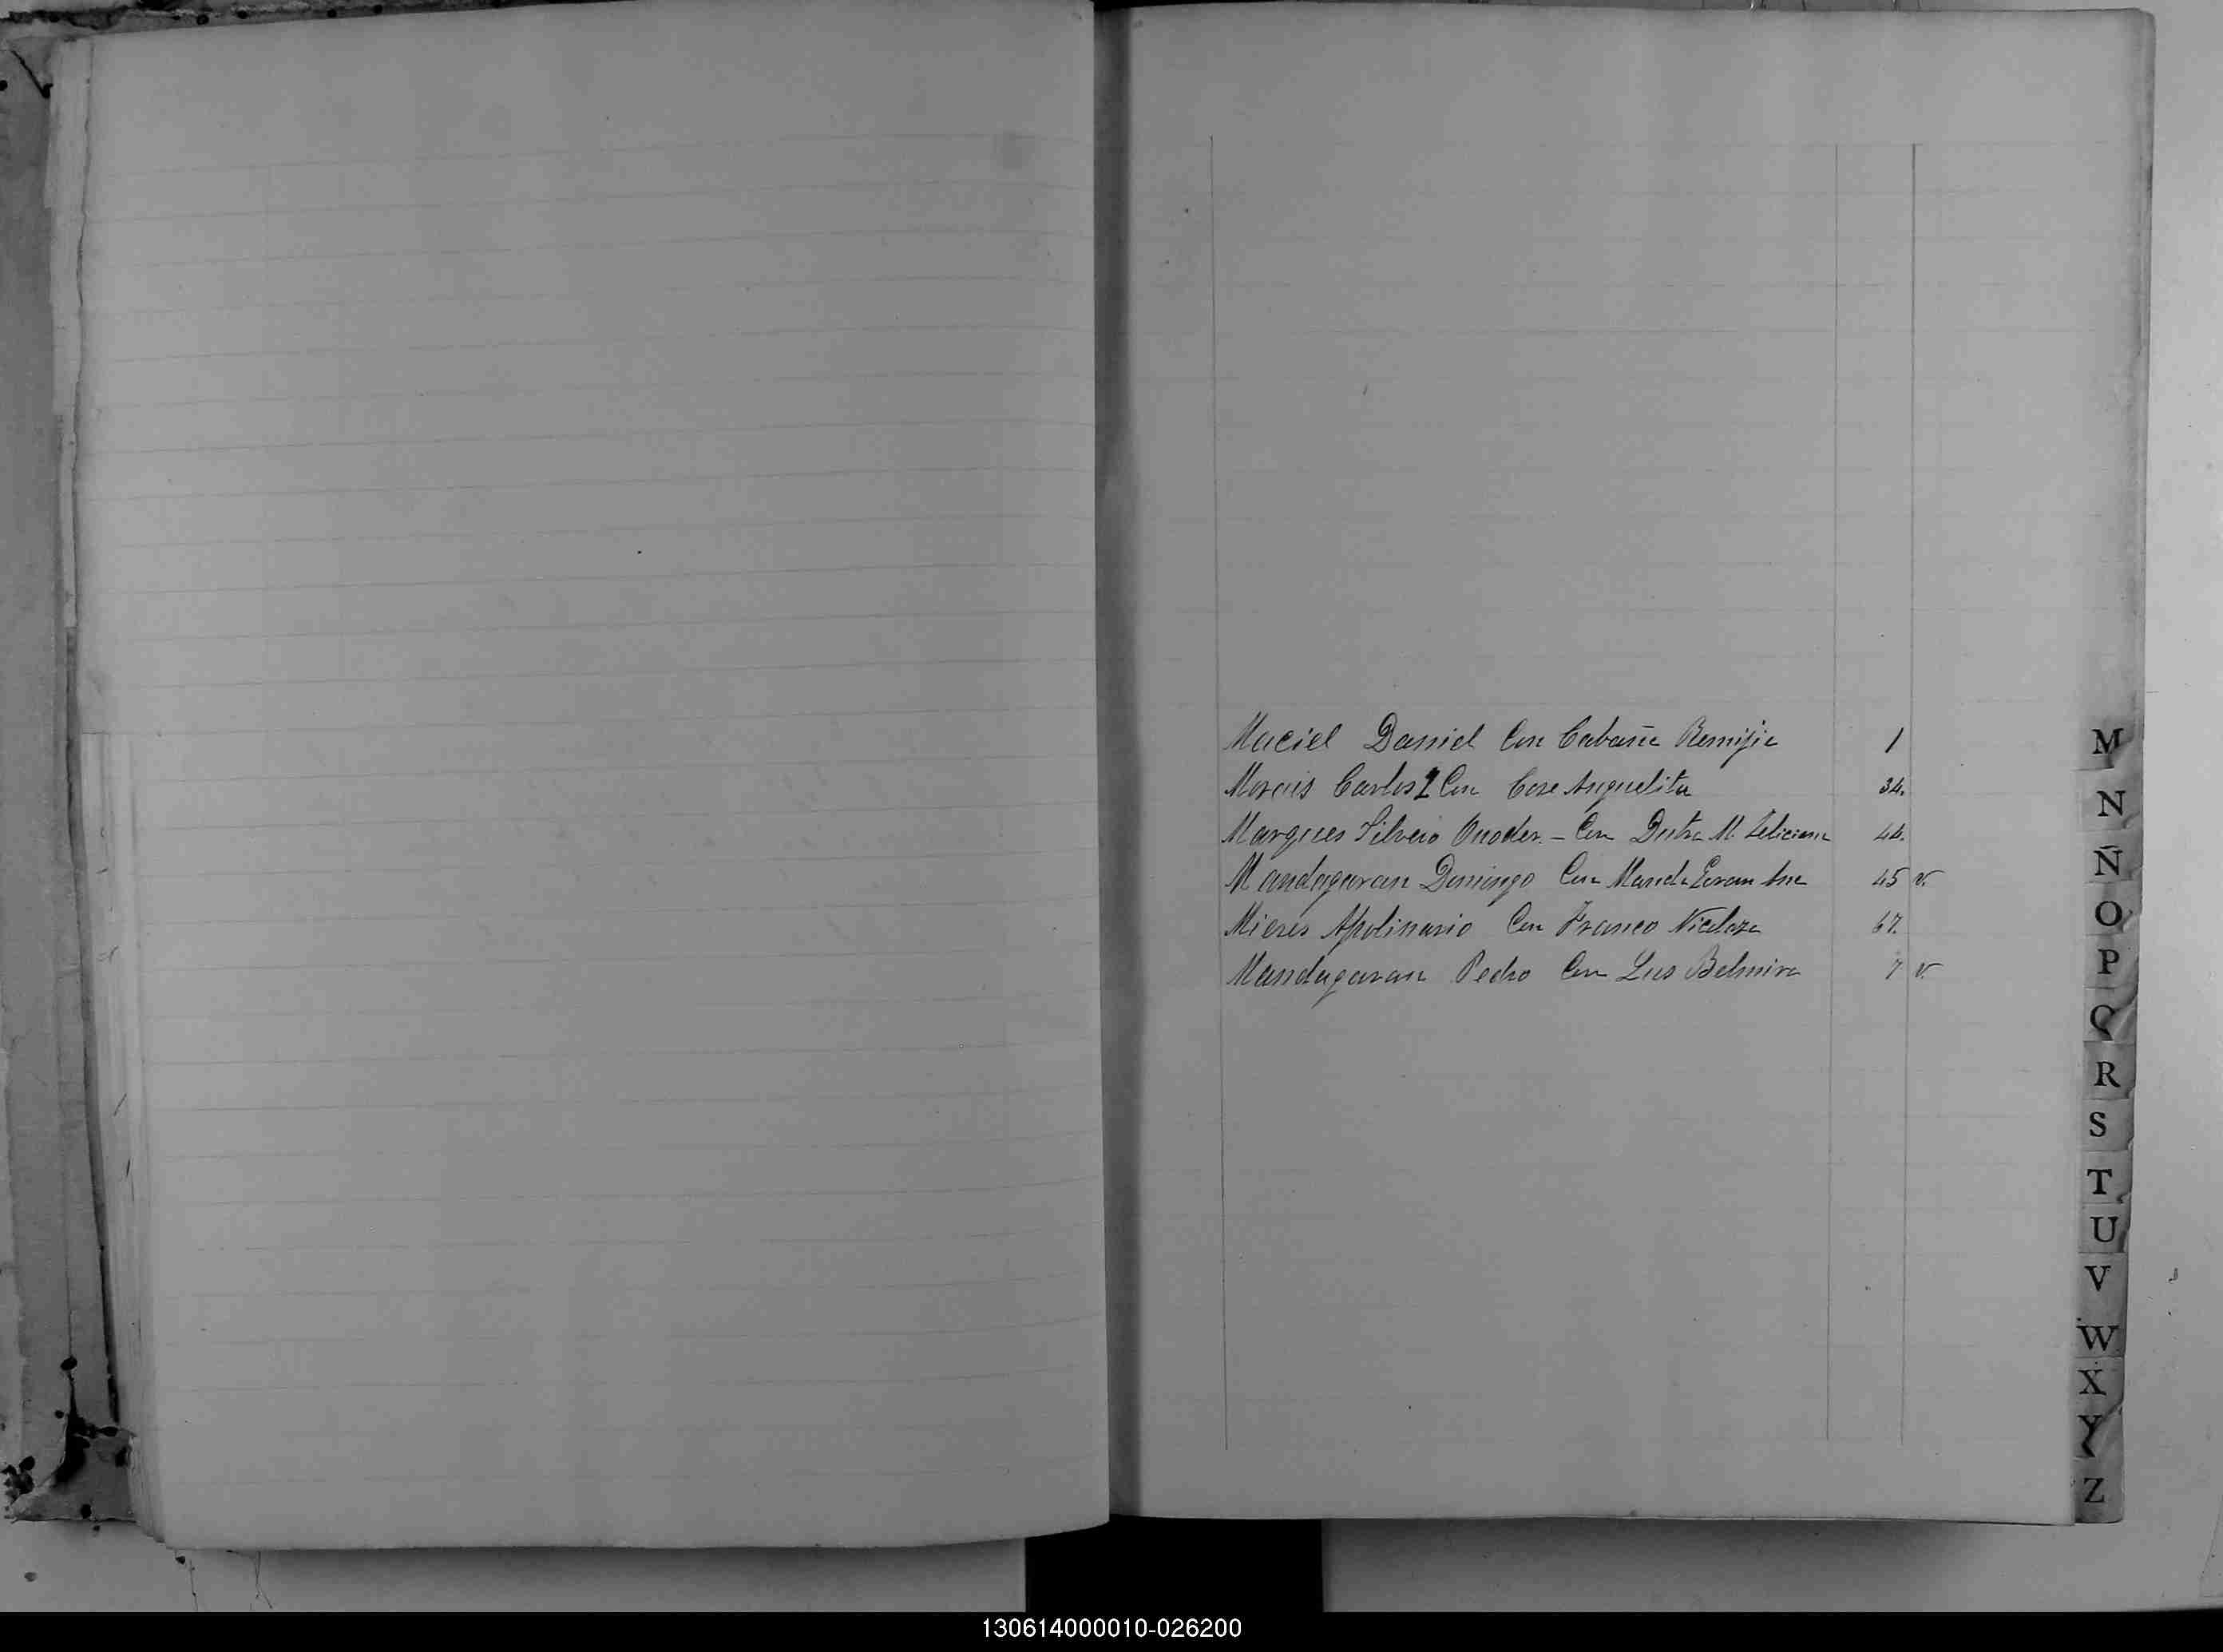 Maciel Daniel Con Cabaña Remijia 1
Morais Carlos Con Anguelita 34.
Marques Silverio Con Dutra M. Feliciana 44.
Mandagaran Domingo Con Mandagaran Ana 45 v.
Mieres Apolinario Con Franco Nicolaza 67.
Mandagaran Pedro Con Lus Belmira 7 v.
M
N
Ñ
O
P
Q
R
S
T
U
V
W
X
Y
Z
130614000010-026200